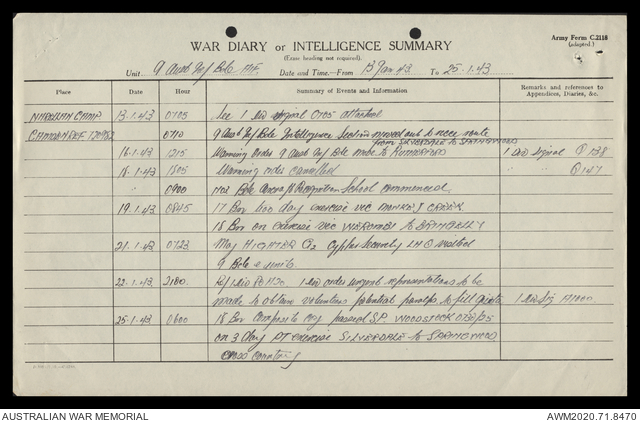 Army Form C.2118
(adapted.)
WAR DIARY or INTELLIGENCE SUMMARY
(Erase heading not required).
Unit 9 Aust Inf Bde AIF. Date and Time—From 13 Jan 43. To 25.1.43
Place Date Hour Summary of Events and Information Remarks and references to Appendices, Diaries, &c.
NARELLAN CAMP 13.1.43 0705 See 1 Div signal 0705 attached
CAMDEN REF 0710 9 Aust Inf Bde Intelligence Section moved out to recce route
from SILVERDALE to SPRINGWOOD
16.1.43 1215 Warning Order 9 Aust Inf Bde move to RUTHERFORD 1 Div Signal G 138
18.1.43 1805 Warning order cancelled G 147
" 0900 Bde Aircraft Recognition School commenced.
19.1.43 0845 17 Bn day exercise vic CREEK
18 Bn on exercise vic WEROMBI to BRINGELLY
21.1.43 0723 Maj HIGHTER Cypher Security LHQ visited
9 Bde & units.
22.1.43 2100 1 Div order urgent representations to be
made to obtain volunteers potential paratps to fill quota 1 Div Sig
25.1.43 0600 18 Bn Composite Coy passed S.P. WOODSTOCK
on 3 day PT exercise SILVERDALE to SPRINGWOOD
cross country
AUSTRALIAN WAR MEMORIAL AWM2020.71.8470